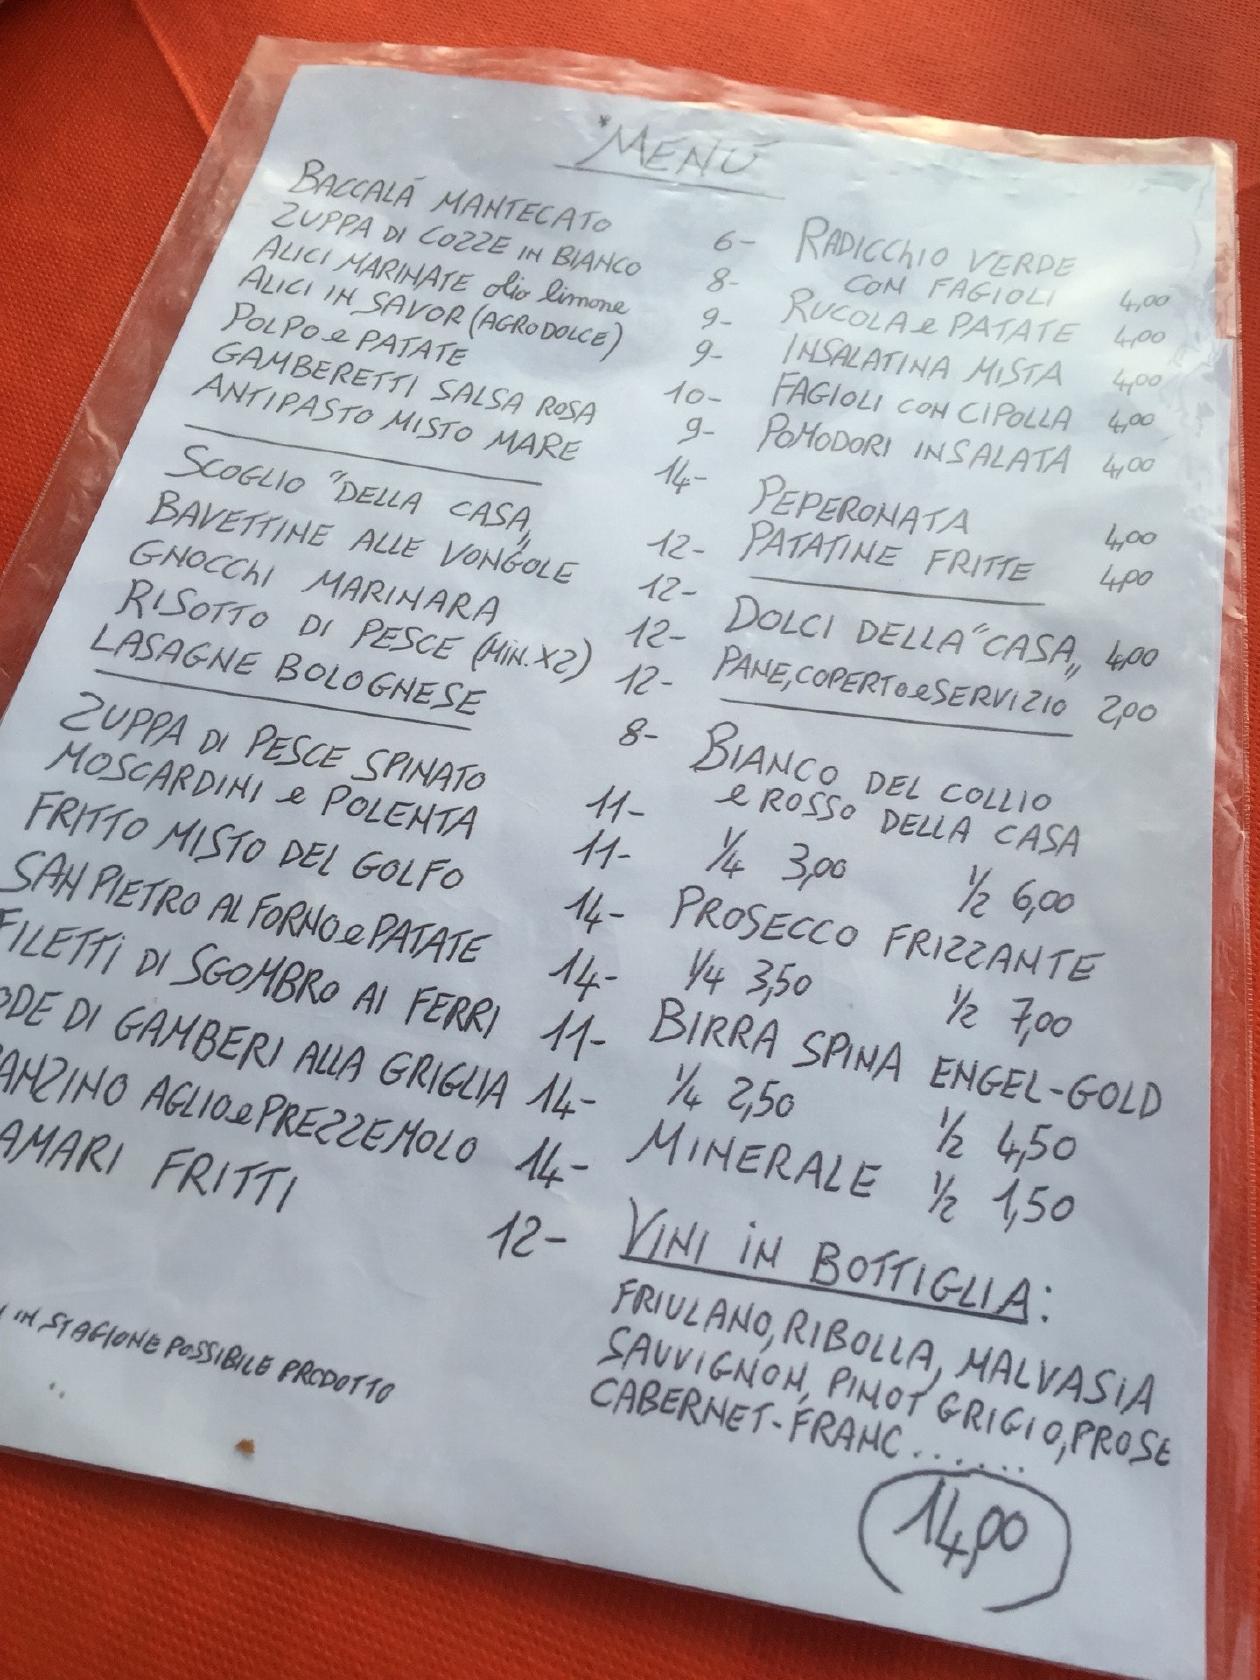 *MENÚ
BACCALÁ MANTECATO 6-
ZUPPA DI COZZE IN BIANCO 8-
ALICI MARINATE olio limone 9-
ALICI IN SAVOR (AGRODOLCE) 9-
POLPO e PATATE 10-
GAMBERETTI SALSA ROSA 9-
ANTIPASTO MISTO MARE 14-
SCOGLIO "DELLA CASA„ 12-
BAVETTINE ALLE VONGOLE 12-
GNOCCHI MARINARA 12-
RISOTTO DI PESCE (MIN. X2) 12-
LASAGNE BOLOGNESE 8-
ZUPPA DI PESCE SPINATO 11-
MOSCARDINI e POLENTA 11-
FRITTO MISTO DEL GOLFO 14-
SAN PIETRO AL FORNO e PATATE 14-
FILETTI DI SGOMBRO AI FERRI 11-
ODE DI GAMBERI ALLA GRIGLIA 14-
ANZINO AGLIO e PREZZEMOLO 14-
AMARI FRITTI 12-
IN STAGIONE POSSIBILE PRODOTTO
RADICCHIO VERDE
CON FAGIOLI 4,00
RUCOLA e PATATE 4,00
INSALATINA MISTA 4,00
FAGIOLI CON CIPOLLA 4,00
POMODORI INSALATA 4,00
PEPERONATA 4,00
PATATINE FRITTE 4,00
DOLCI DELLA "CASA„ 4,00
PANE, COPERTO e SERVIZIO 2,00
BIANCO DEL COLLIO
e ROSSO DELLA CASA
1/4 3,00 1/2 6,00
PROSECCO FRIZZANTE
1/4 3,50 1/2 7,00
BIRRA SPINA ENGEL-GOLD
1/4 2,50 1/2 4,50
MINERALE 1/2 1,50
VINI IN BOTTIGLIA:
FRIULANO, RIBOLLA, MALVASIA
SAUVIGNON, PINOT GRIGIO, PROSE
CABERNET-FRANC......
14,00